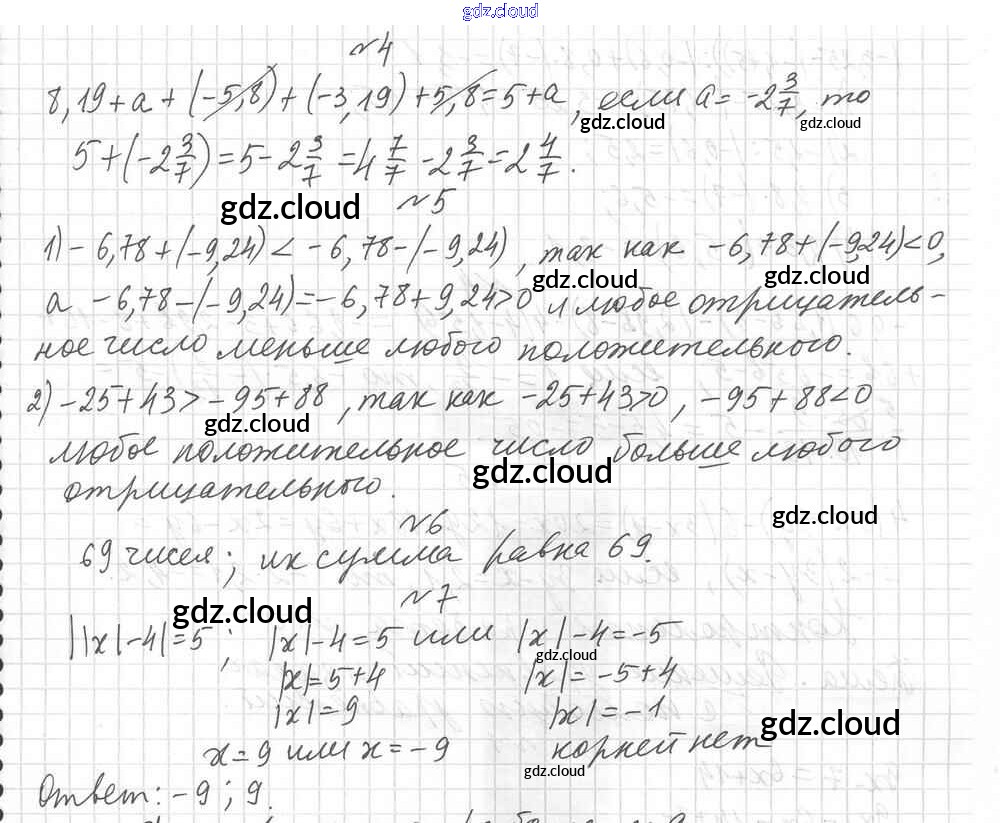 gdz.cloud
№4
8,19+a+(-5,8)+(-3,19)+5,8=5+a, если a=-2 3/7, то
5+(-2 3/7)=5-2 3/7=4 7/7-2 3/7=2 4/7.
№5
1) -6,78+(-9,24)<-6,78-(-9,24), так как -6,78+(-9,24)<0,
а -6,78-(-9,24)=-6,78+9,24>0 и любое отрицатель-
ное число меньше любого положительного.
2) -25+43>-95+88, так как -25+43>0, -95+88<0
любое положительное число больше любого
отрицательного.
№6
69 чисел; их сумма равна 69.
№7
||x|-4|=5; |x|-4=5 или |x|-4=-5
|x|=5+4 |x|=-5+4
|x|=9 |x|=-1
x=9 или x=-9 корней нет
Ответ: -9; 9.
gdz.cloud
gdz.cloud
gdz.cloud
gdz.cloud
gdz.cloud
gdz.cloud
gdz.cloud
gdz.cloud
gdz.cloud
gdz.cloud
gdz.cloud
gdz.cloud